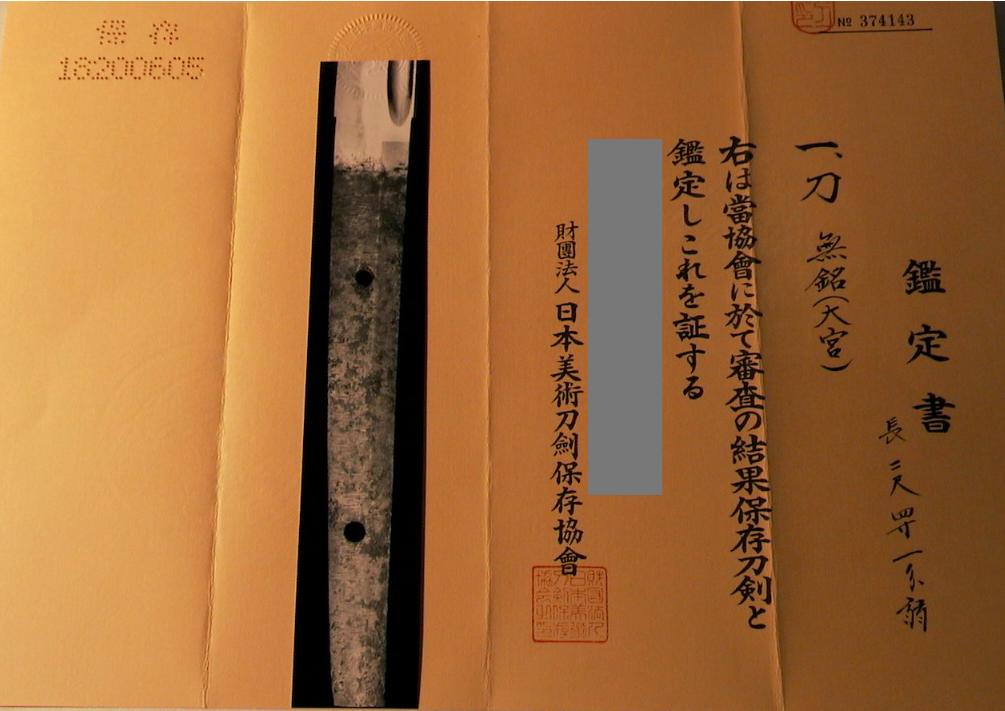 № 374143
鑑定書
長 二尺四寸一分弱
一、刀 無銘(大宮)
右は當協會に於て審査の結果保存刀剣と
鑑定しこれを証する
財團法人 日本美術刀劍保存協會
保存
18200605